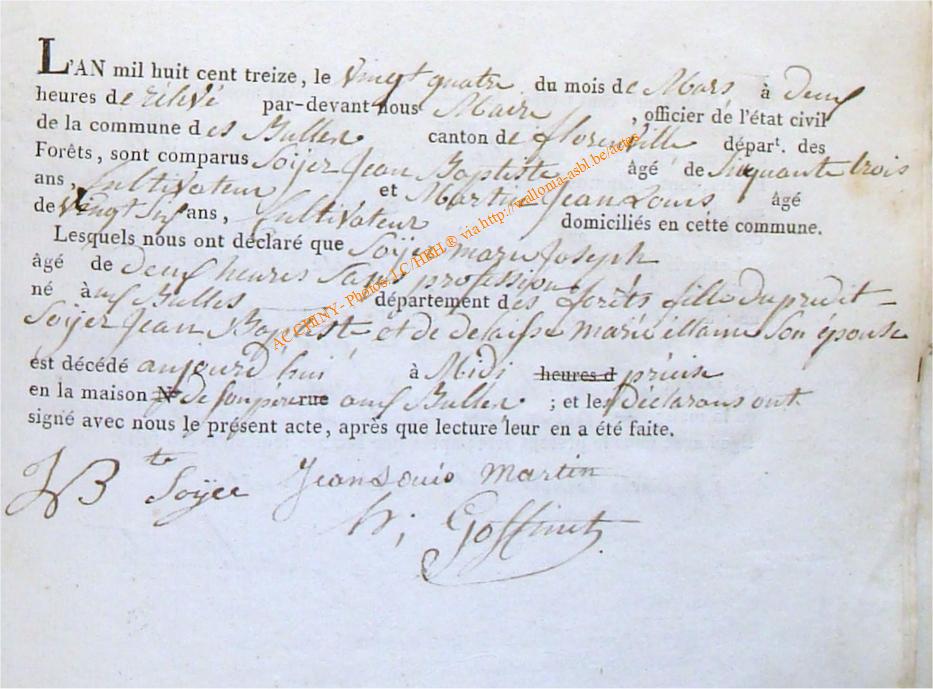 L'AN mil huit cent treize, le vingt quatre du mois de Mars à deux
heures de rélivé par-devant nous Maire, officier de l'état civil
de la commune des Bulles canton de florenville départ. des
Forêts, sont comparus Soijer Jean Baptiste âgé de sinquante trois
ans, Cultivateur et Martin Jean Louis âgé
de vingt six ans, Cultivateur domiciliés en cette commune.
Lesquels nous ont déclaré que Soijer marie Joseph
âgé de deux heures sans profession
né à aux Bulles département des forêts fille du prédit
Soijer Jean Baptiste et de marie son épouse
est décédé aujourd'hui à Midi heures d précise
en la maison N.° de son père rue aux Bulles ; et les déclarans ont
signé avec nous le présent acte, après que lecture leur en a été faite.
JB te Soijer Jean Louis Martin
Goffinet
ACC CHINY - Photos LC/HBH® via http://wallonia-asbl.be/actes